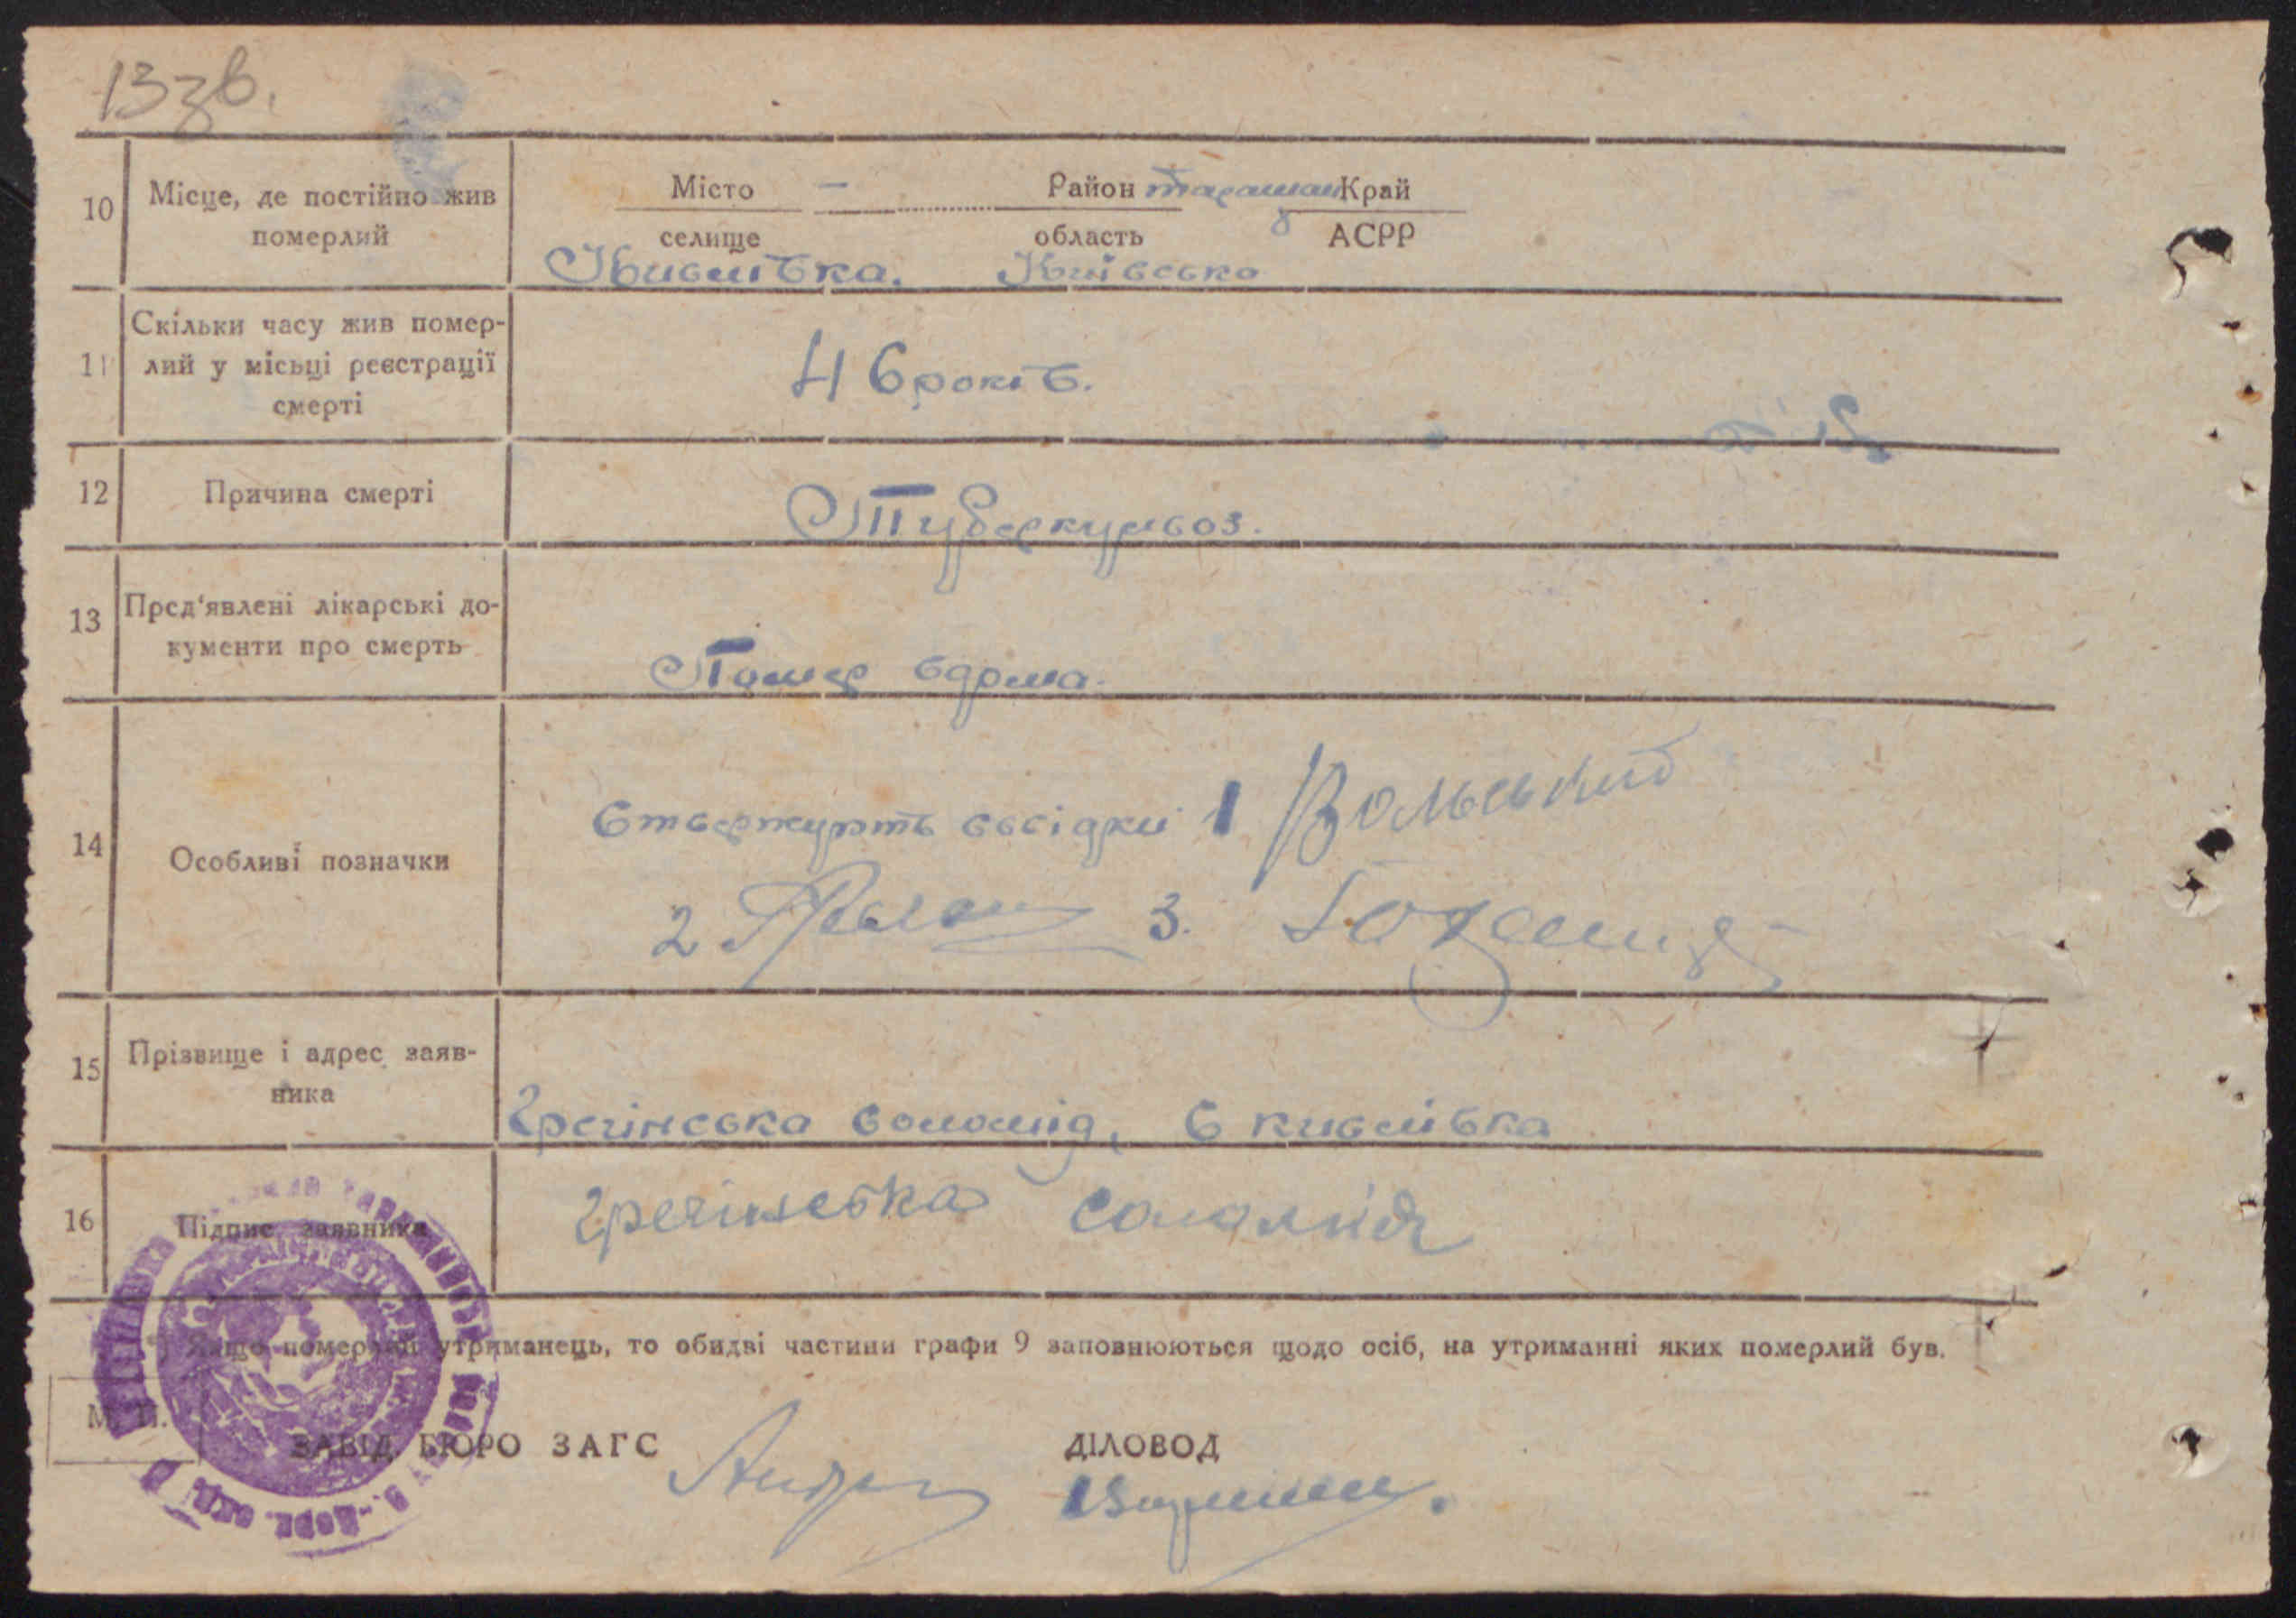 13зв.
10 Місце, де постійно жив Місто — Район таращан Край
померлий селище область АСРР
Кившівка. Київська
Скільки часу жив помер-
11 лий у місьці реєстрації 46 років.
смерті
12 Причина смерті Туберкульоз.
13 Пред'явлені лікарські до-
кументи про смерть Помер вдома.
14 Особливі позначки ствержують свідки 1 Вольський
2 3.
15 Прізвище і адрес заяв-
ника Гречінська соломія, с кившівка
16 Підпис заявника Гречінська соломія
*) Якщо померлий утриманець, то обидві частини графи 9 заповнюються щодо осіб, на утриманні яких померлий був.
М. П.
ЗАВІД. БЮРО ЗАГС ДІЛОВОД